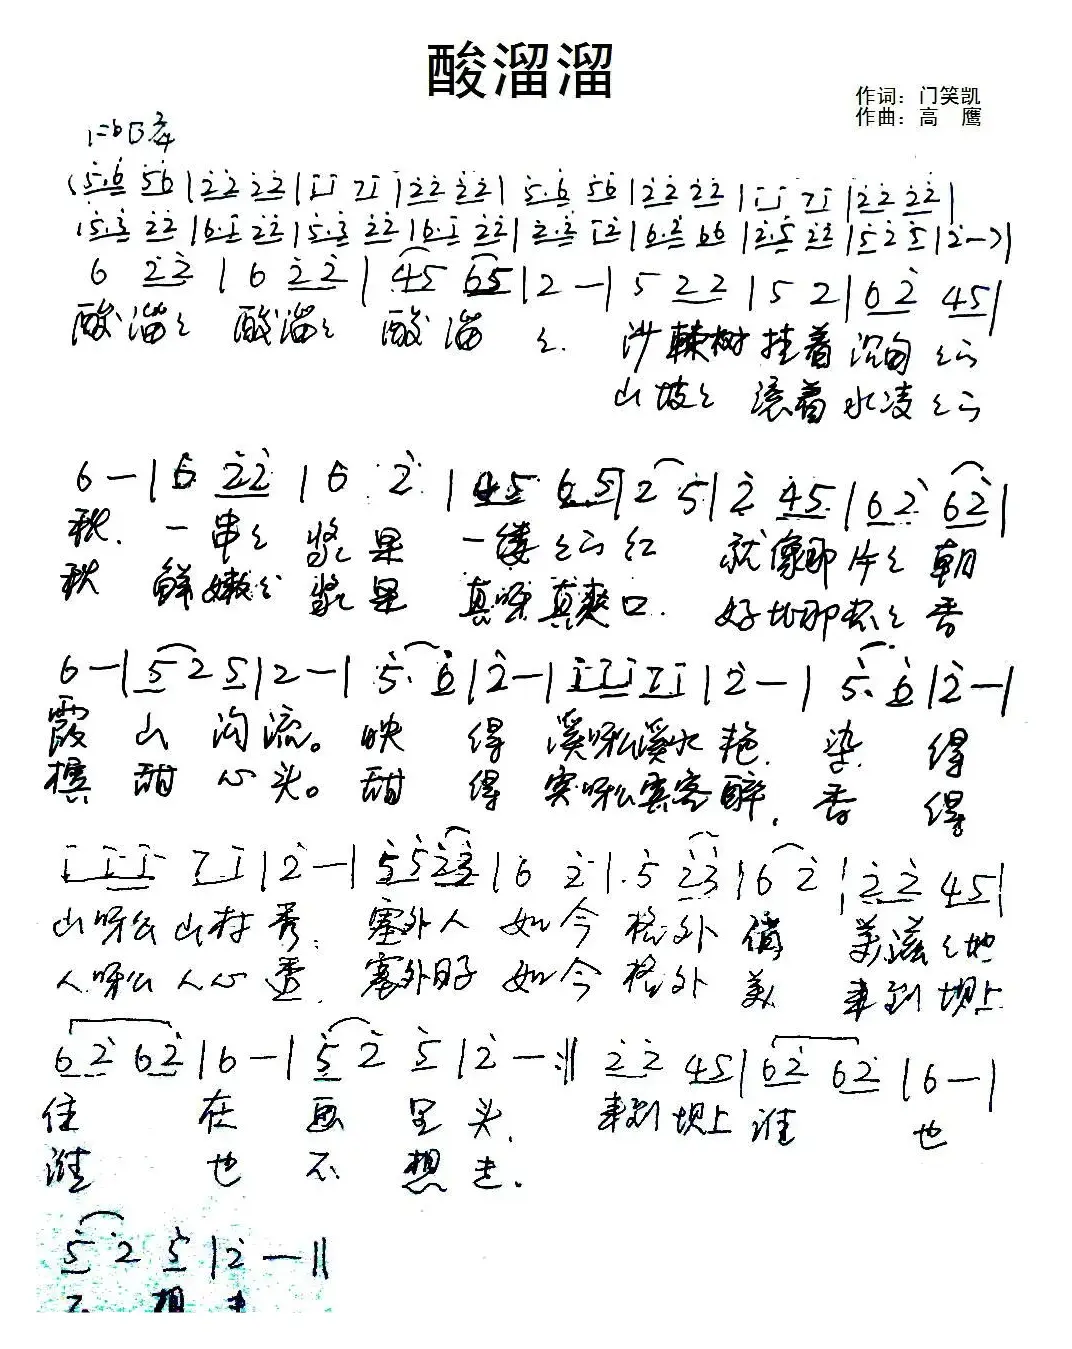 酸溜溜
作词：门笑凯
作曲：高 鹰
1=bB 2/4
(5.6 56|22 22|11 71|22 22|5.6 56|22 22|11 71|22 22|
5.3 22|6.1 22|5.3 22|6.1 22|2.2 12|6.2 66|2.5 22|52 5|2—)|
6 22|6 22|45 65|2—|5 22|5 2|62 45|
酸溜々 酸溜々 酸溜 々. 沙棘树 挂着 沉甸 々的
山坡々 滚着 水凌 々的
6—|6 22|6 2|45 65|2 5|2 45|62 62|
秋. 一串々 浆果 一缕 々的 红 就像那片々 朝
秋 鲜嫩々 浆果 真呀真爽口. 好比那杯々 香
6—|52 5|2—|5. 6|2—|111 71|2—|5. 6|2—|
霞 山 沟流。映 得 溪呀么溪水 艳. 染 得
槟 甜 心头。甜 得 宾呀么宾客 醉. 香 得
111 71|2—|5522|6 2|5 23|6 2|22 45|
山呀么山村 秀. 塞外人 如今 格外 俏 美滋々地
人呀么人心 透. 塞外日子 如今 格外 美 来到 坝上
62 62|6—|52 5|2—:‖22 45|62 62|6—|
住 在 画 里 头. 来到 坝上 谁 也
谁 也 不 想 走.
52 5|2—‖
不 想 走